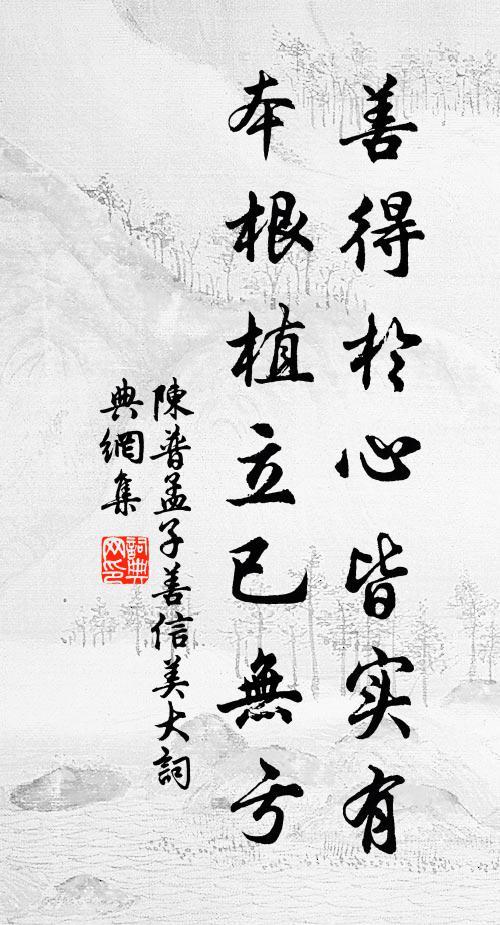 善得於心皆实有
本根植立已無亏
陳普孟子善信美大詞
典網集
詞典网印